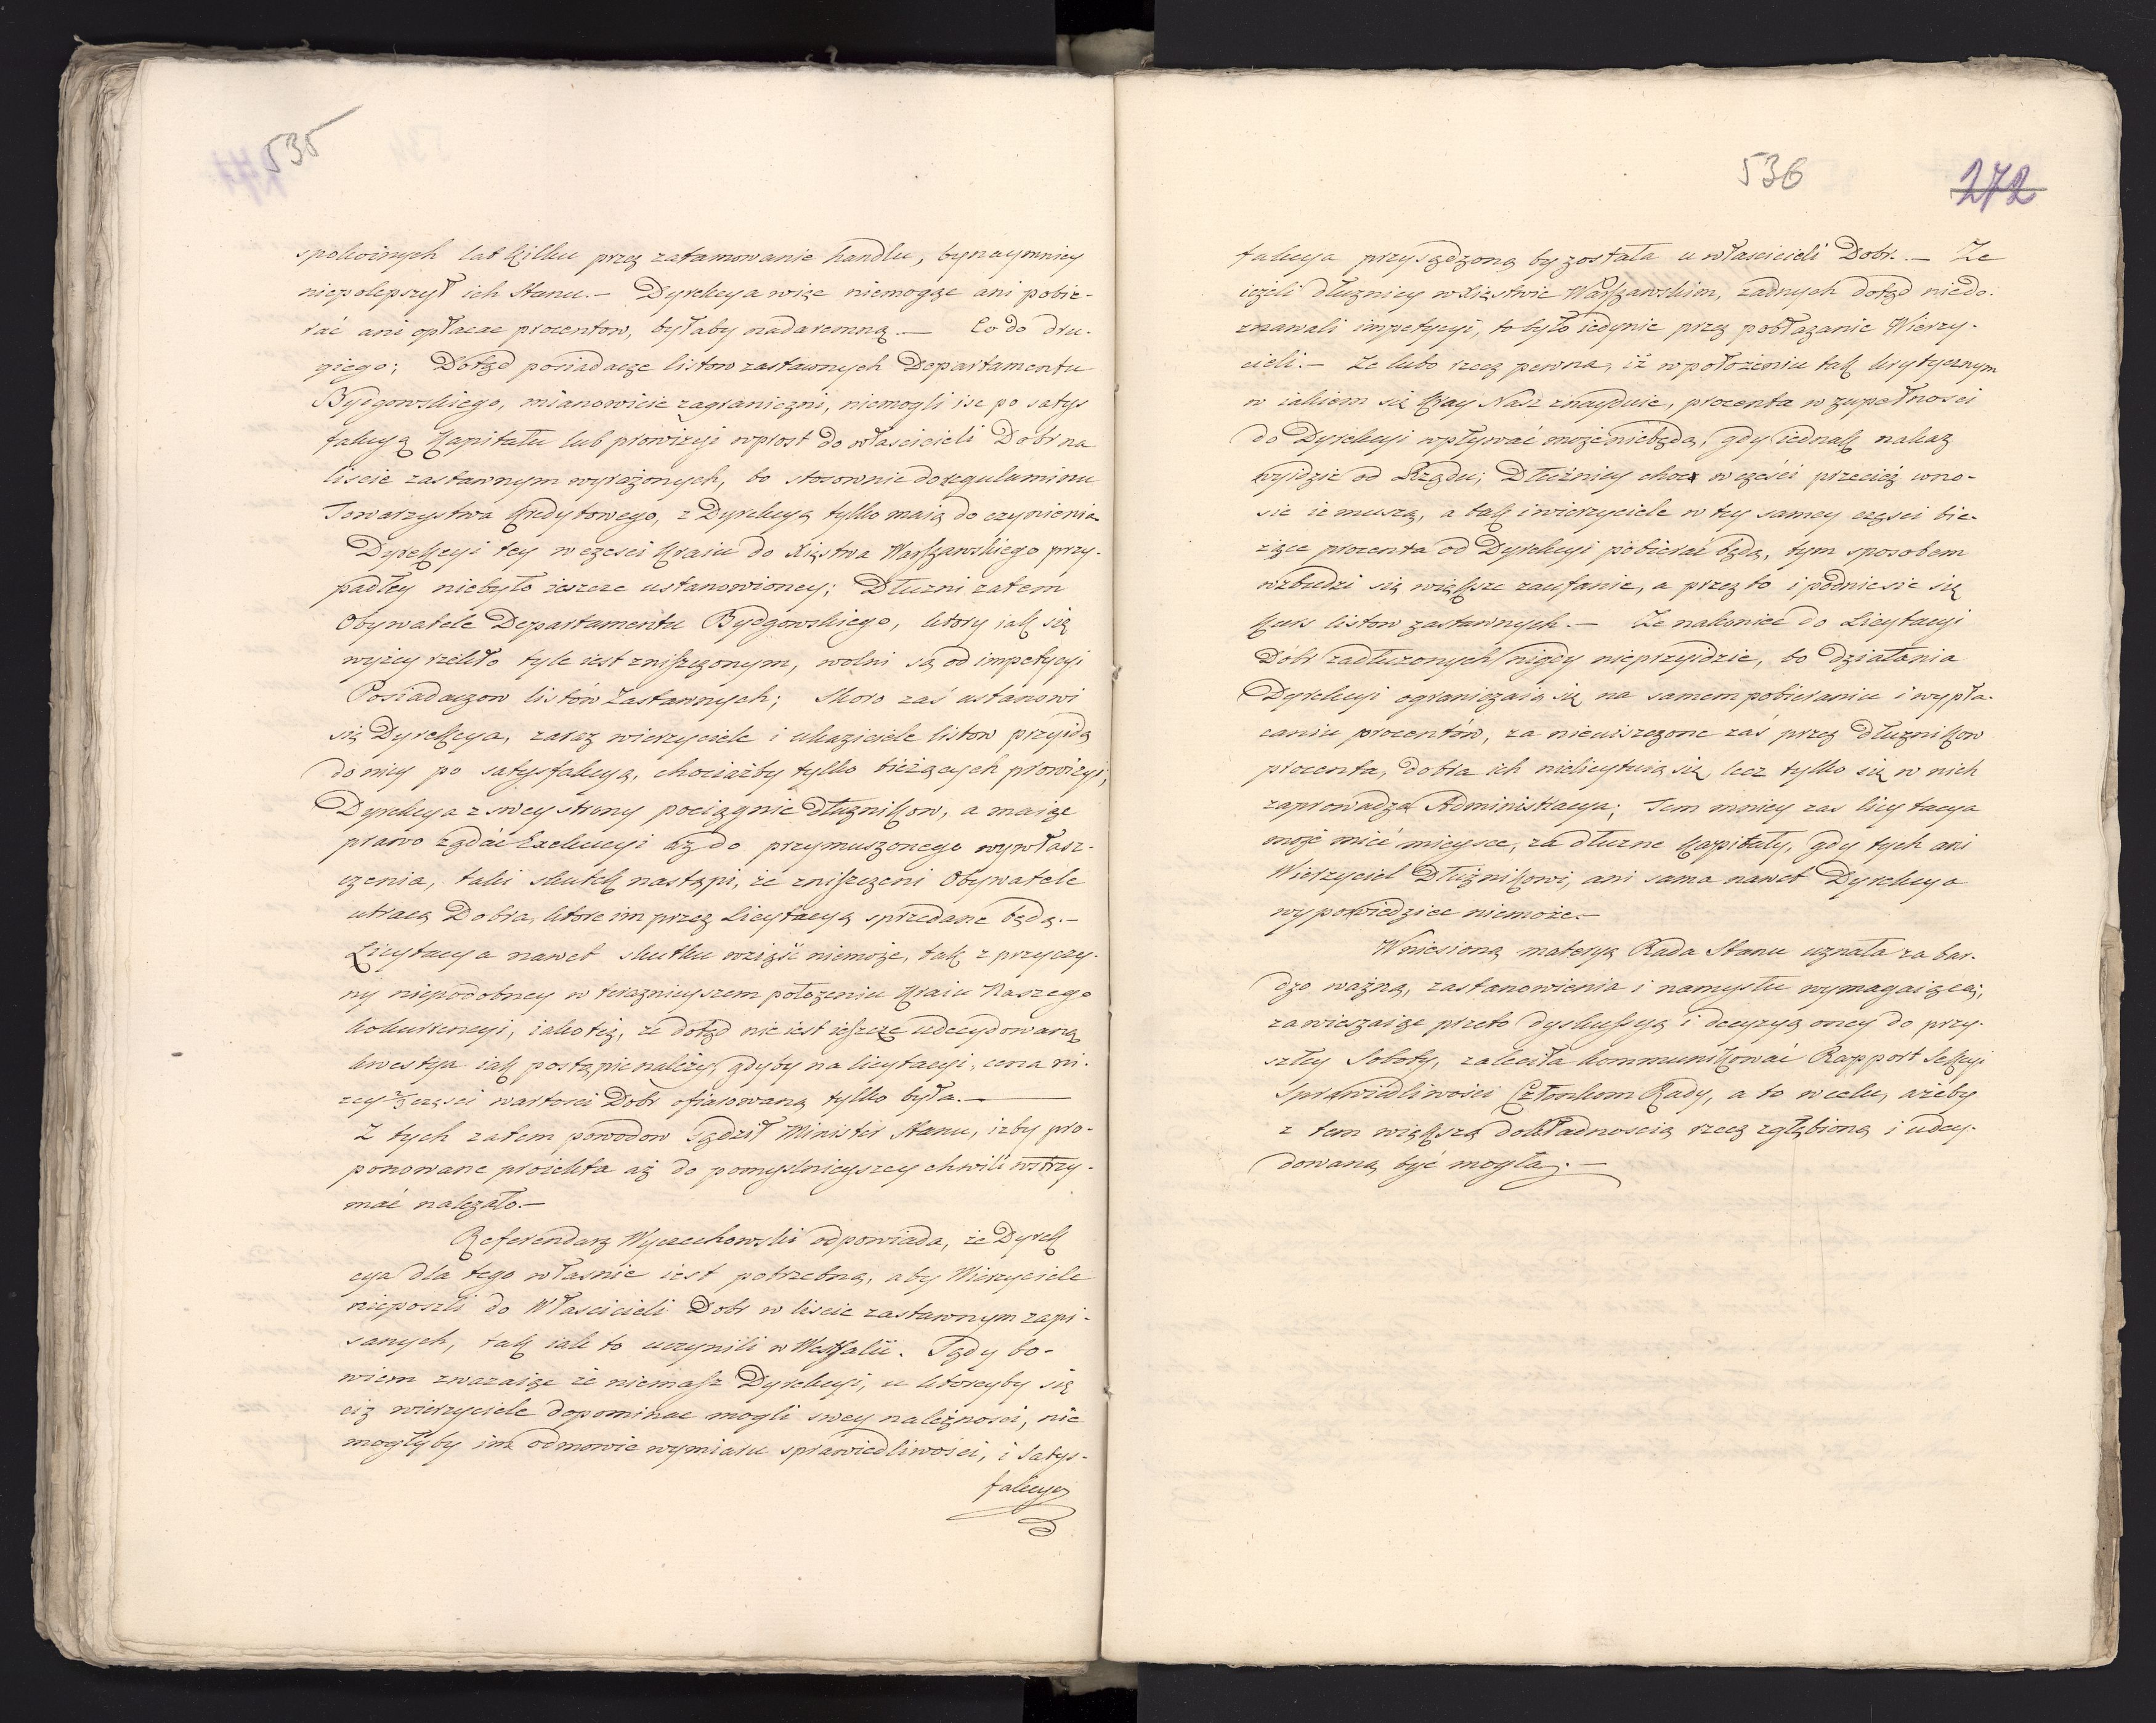 535
spokoinych lat kilku przez zatamowanie handlu, bynaymniey
niepolepszył ich Stanu. — Dyrekcya więc niemogąc ani pobie-
rać ani opłacac procentow, byłaby nadaremną. — Co do dru-
giego; Dotąd posiadacze listow zastawnych Departamentu
Bydgowskiego, mianowicie zagraniczni, niemogli isc po satys
fakcyą Kapitału lub prowizyi wprost do właścicieli Dobr na
liscie zastawnym wyrażonych, bo stosownie do regulaminu
Towarzystwa Kredytowego, z Dyrekcyą tylko maią do czynienia.
Dyrekcyi tey w czesci Kraiu do Xięstwa Warszawskiego przy-
padłey niebyło ieszcze ustanowioney; Dłużni zatem
Obywatele Departamentu Bydgowskiego, ktory iak się
wyżey rzekło tyle iest zniszczonym, wolni są od impetycyi
Posiadaczow listów Zastawnych; Skoro zaś ustanowi
się Dyrekcya, zaraz wierzyciele i okaziciele listow przyidą
do niey po satysfakcyą, chociażby tylko bieżących prowizyi,
Dyrekcya z swey strony pociągnie dłużnikow, a maiąc
prawo żądać Exekucyi aż do przymuszonego wywłasz-
czenia, taki skutek nastąpi, że zniszczeni Obywatele
utracą Dobra, ktore im przez Licytacyą sprzedane będą. —
Licytacya nawet skutku wziąść niemoże, tak z przyczy-
ny niepodobney w teraznieyszem położeniu Kraiu Naszego
kokurrencyi, iako też, że dotąd nie iest ieszcze udecydowaną
kwestya iak postąpic należy, gdyby na licytacyi, cena ni-
zey 2/3 czesci wartosci Dobr ofiarowaną tylko była. —
Z tych zatem powodow sądził Minister Stanu, iżby pro-
ponowane proiekta aż do pomyslnieyszey chwili wstrzy-
mać należało. —
Referendarz Wyczechowski odpowiada, że Dyrek
cya dla tego własnie iest potrzebną, aby Wierzyciele
nieposzli do Włascicieli Dobr w liscie zastawnym zapi-
sanych, tak iak to uczynili w Westfalii. Sądy bo-
wiem zwazaiąc że niemasz Dyrekcyi, u ktoreyby się
ciż wierzyciele dopominac mogli swey należnosci, nie
mogłyby im odmowic wymiaru sprawiedliwosci, i Satys-
fakcya
536
272
fakcya przysądzoną by została u właścicieli Dobr. — Ze
ieżeli dłużnicy w Xięstwie Warszawskim, żadnych dotąd niedo-
znawali impetycyi, to było iedynie przez pobłażanie Wierzy-
cieli. — Ze lubo rzecz pewna, iż w położeniu tak krytycznym
w iakiem się Kray Nasz znayduie, procenta w zupełnosci
do Dyrekcyi wpływać może niebędą, gdy iednak nakaz
wyidzie od Rządu; Dłużnicy choć w części przecież wno-
sic ie muszą, a tak i wierzyciele w tey samey częsci bie-
żące procenta od Dyrekcyi pobierać będą, tym sposobem
wzbudzi się większe zaufanie, a przez to i podniesie się
Kurs listow zastawnych. — Ze nakoniec do Licytacyi
Dóbr zadłużonych nigdy nieprzyidzie, bo działania
Dyrekcyi ograniczaią się na samem pobieraniu i wypła-
caniu procentów, za nieuiszczone zaś przez dłużnikow
procenta, dobra ich nielicytuią się, lecz tylko się w nich
zaprowadza Administracya; Tem mniey zas licytacya
może mieć mieysce, za dłużne Kapitały, gdy tych ani
Wierzyciel Dłużnikowi, ani sama nawet Dyrekcya
wypowiedziec niemoże. —
Wniesioną materyą Rada Stanu uznała za bar-
dzo ważną, zastanowienia i namysłu wymagaiącą;
zawieszaiąc przeto dyskussyą i decyzyą oney do przy-
szłey Soboty, zaleciła kommunikować Rapport Sekcyi
Sprawiedliwości Członkom Rady, a to w celu, ażeby
z tem większą dokładnoscią rzecz zgłębioną i udecy-
dowaną być mogła. —